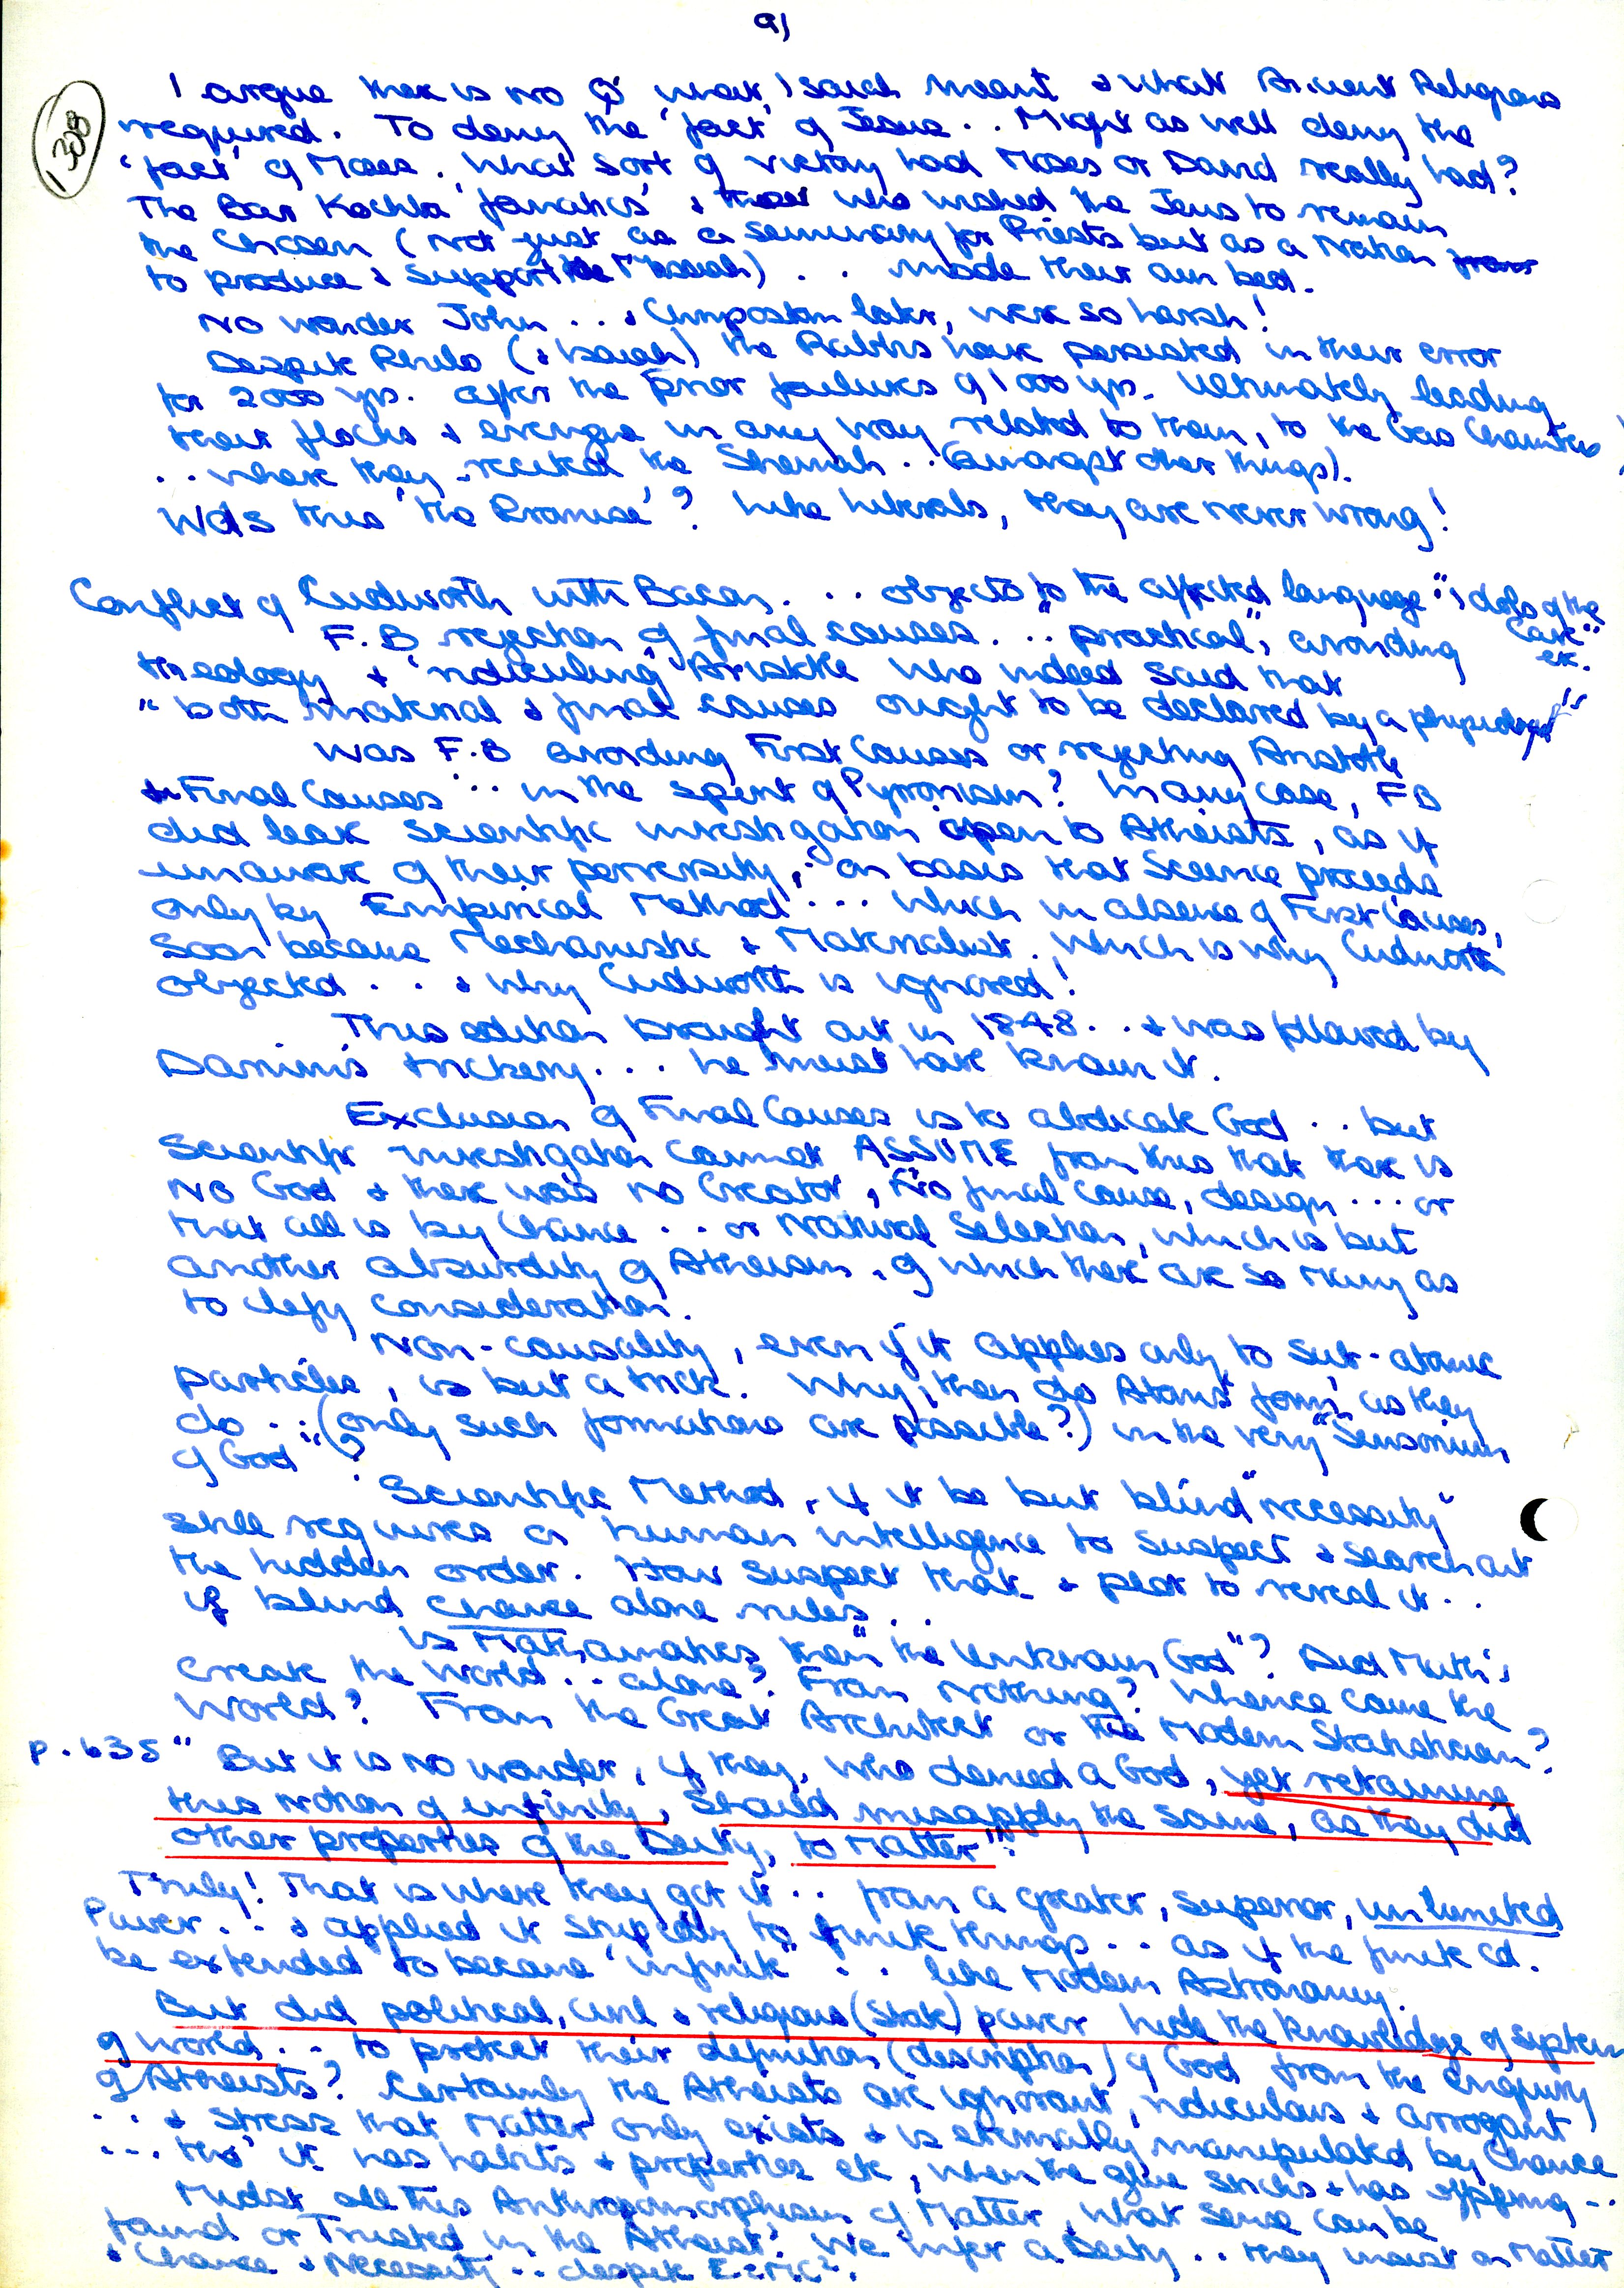 9)
1308
I argue there is no Q' what I said meant & what Ancient Religions
required. To deny the 'fact' of Jesus .. Might as well deny the
'fact' of Moses. What sort of victory had Moses or David really had?
The Bar Kochba 'fanatics' & those who wished the Jews to remain
the Chosen (not just as a seminary for Priests but as a Nation from
to produce & support the Messiah) .. made their own bed.
No wonder John ... & Chrysostom later, were so harsh!
Despite Philo (& Isaiah) the Rabbis have persisted in their error
for 2000 yrs. after the prior failures of 1000 yrs. Ultimately leading
their flocks & everyone in any way related to them, to the Gas Chambers
.. where they recited the Shemah .. (amongst other things).
Was this 'the Promise'? Like Liberals, they are never wrong!
Conflict of Cudworth with Bacon. .. objects to the affected language "idols of the
Cave" etc.
F.B rejection of final causes ... "practical", avoiding
theology & 'ridiculing' Aristotle who indeed said that
"both material & final causes ought to be declared by a physiologist"
Was F.B avoiding First Causes or rejecting Aristotle
& Final Causes .. in the spirit of Pyrronism? In any case, FB
did leave scientific investigation open to Atheists, as if
unaware of their perversity, on basis that Science proceeds
only by Empirical Method ... which in absence of First Causes,
soon became Mechanistic & Materialist. Which is why Cudworth
objected .. & why Cudworth is ignored!
This edition brought out in 1848 .. & was followed by
Darwin's trickery ... he must have known it.
Exclusion of Final Causes is to abdicate God .. but
Scientific investigation cannot ASSUME from this that there is
no God & there was no Creator, no final cause, design ... or
that all is by Chance .. or Natural Selection, which is but
another absurdity of Atheism, of which there are so many as
to defy consideration.
Non-causality, even if it applies only to sub-atomic
particles, is but a trick. Why, then do Atoms 'form' as they
do .. (only such formations are possible?) in the very "Sensorium
of God"?
Scientific Method, if it be but blind "necessity"
still requires a human intelligence to suspect & search out
the hidden order. How suspect that & plot to reveal it ..
if blind chance alone rules ..
Is Mathamatics then "the Unknown God"? Did Math's
create the World .. alone? From Nothing? Whence came the
World? From the Great Architect or the Modern Statistician?
p. 635 "But it is no wonder, if they, who denied a God, yet retaining
this notion of infinity, should misapply the same, as they did
other properties of the Deity, to Matter"
Truly! That is where they got it .. from a greater, superior, unlimited
Power .. & applied it stupidly to finite things .. as if the finite cd.
be extended to become 'infinite' .. like Modern Astronomy.
But did political, civil & religious (State) power hide the knowledge of System
of World .. to protect their definition (description) of God from the enquiry
of Atheists? Certainly the Atheists are ignorant, ridiculous & arrogant
.. & stress that Matter only exists & is eternally manipulated by Chance
... tho' it has habits & properties etc, when the glue sticks & has
Midst all this Anthropomorphism of Matter, what sense can be
found or Trusted in the Atheist? We infer a Deity .. they insist on Matter
& Chance & Necessity .. despite E=MC².